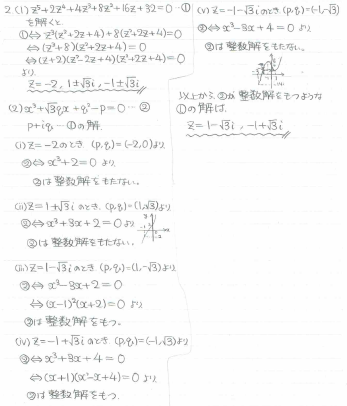 2.(1) z⁵+2z⁴+4z³+8z²+16z+32=0 …①
を解くと.
①⇔z³(z²+2z+4)+8(z²+2z+4)=0
⇔(z³+8)(z²+2z+4)=0
⇔(z+2)(z²-2z+4)(z²+2z+4)=0
より.
z=-2, 1±√3i, -1±√3i
(2) x³+√3qx+q²-p=0 …②
p+qi …①の解.
(i) z=-2のとき. (p,q)=(-2,0)より.
②⇔x³+2=0 より.
②は整数解をもたない。
(ii) z=1+√3iのとき. (p,q)=(1,√3)より.
②⇔x³+3x+2=0より
②は整数解をもたない.
(iii) z=1-√3iのとき. (p,q)=(1,-√3)より
②⇔x³-3x+2=0
⇔(x-1)²(x+2)=0 より
②は整数解をもつ。
(iv) z=-1+√3iのとき. (p,q)=(-1,√3)より
②⇔x³+3x+4=0
⇔(x+1)(x²-x+4)=0 より.
②は整数解をもつ.
(v) z=-1-√3iのとき. (p,q)=(-1,-√3)
②⇔x³-3x+4=0 より
②は整数解をもたない。
以上から. ②が整数解をもつような
①の解は.
z=1-√3i, -1+√3i